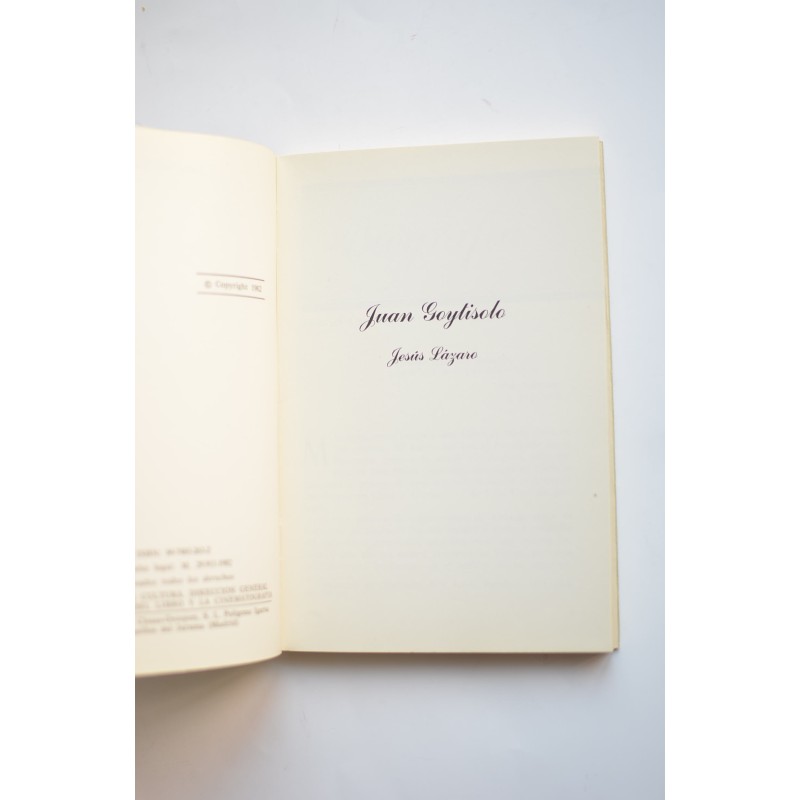 © Copyright 1982
ISBN:
legal: M.
todos los derechos
CULTURA. DIRECCION GENERAL
DEL LIBRO Y LA CINEMATOGRAFIA
(Madrid)
Juan Goytisolo
Jesús Lázaro